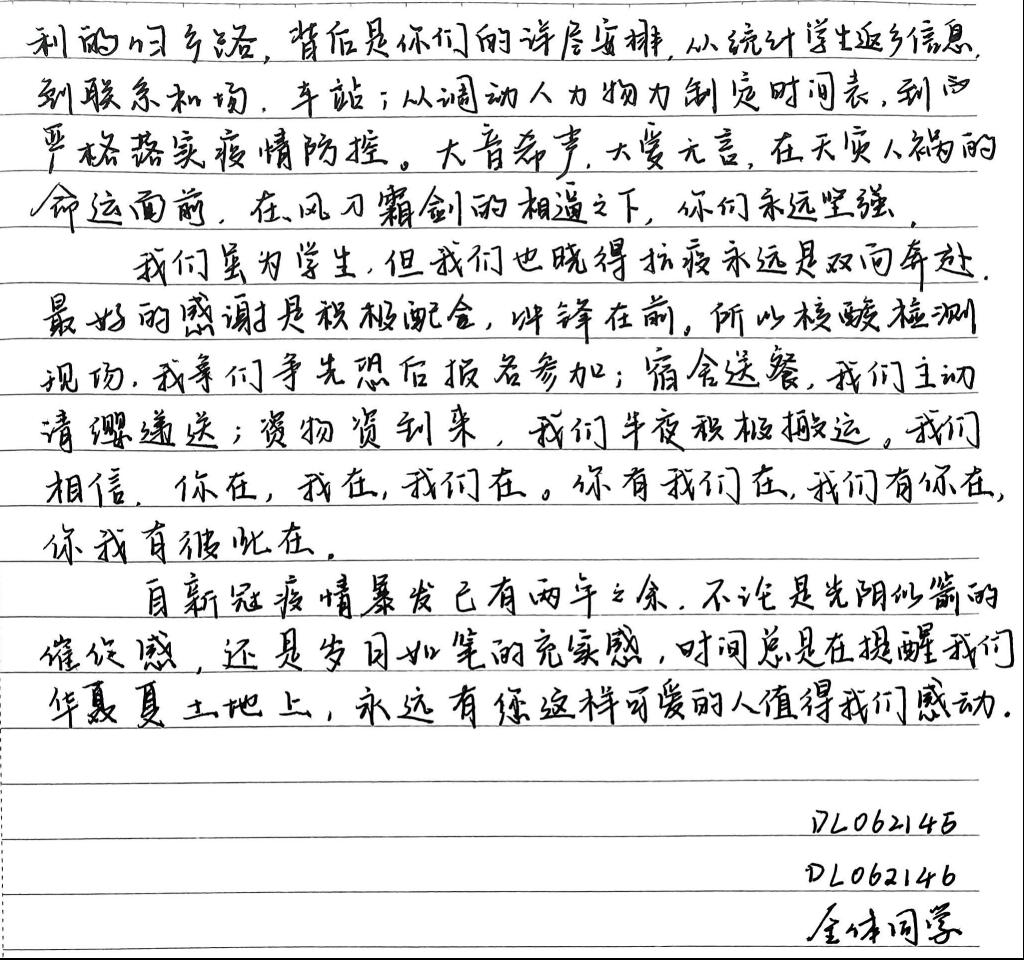 利的归乡路，背后是你们的详尽安排，从统计学生返乡信息，
到联系机场、车站；从调动人力物力制定时间表，到
严格落实疫情防控。大音希声，大爱无言，在天灾人祸的
命运面前，在风刀霜剑的相逼之下，你们永远坚强。
我们虽为学生，但我们也晓得抗疫永远是双向奔赴。
最好的感谢是积极配合，冲锋在前。所以核酸检测
现场，我们争先恐后报名参加；宿舍送餐，我们主动
请缨递送；物资到来，我们半夜积极搬运。我们
相信，你在，我在，我们在。你有我们在，我们有你在，
你我有彼此在。
自新冠疫情暴发已有两年之余，不论是光阴似箭的
催促感，还是岁月如笔的充实感，时间总是在提醒我们
华夏土地上，永远有您这样可爱的人值得我们感动。
DL062145
DL062146
全体同学